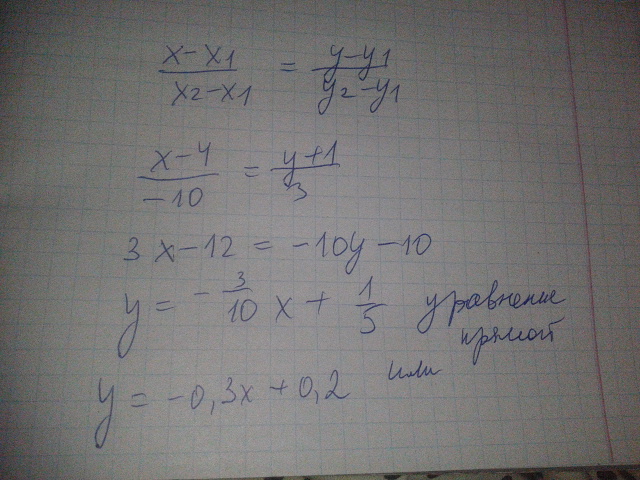 x-x1/x2-x1 = y-y1/y2-y1
x-4/-10 = y+1/3
3x-12 = -10y-10
y = -3/10 x + 1/5 уравнение
прямой
или
y = -0,3x+0,2